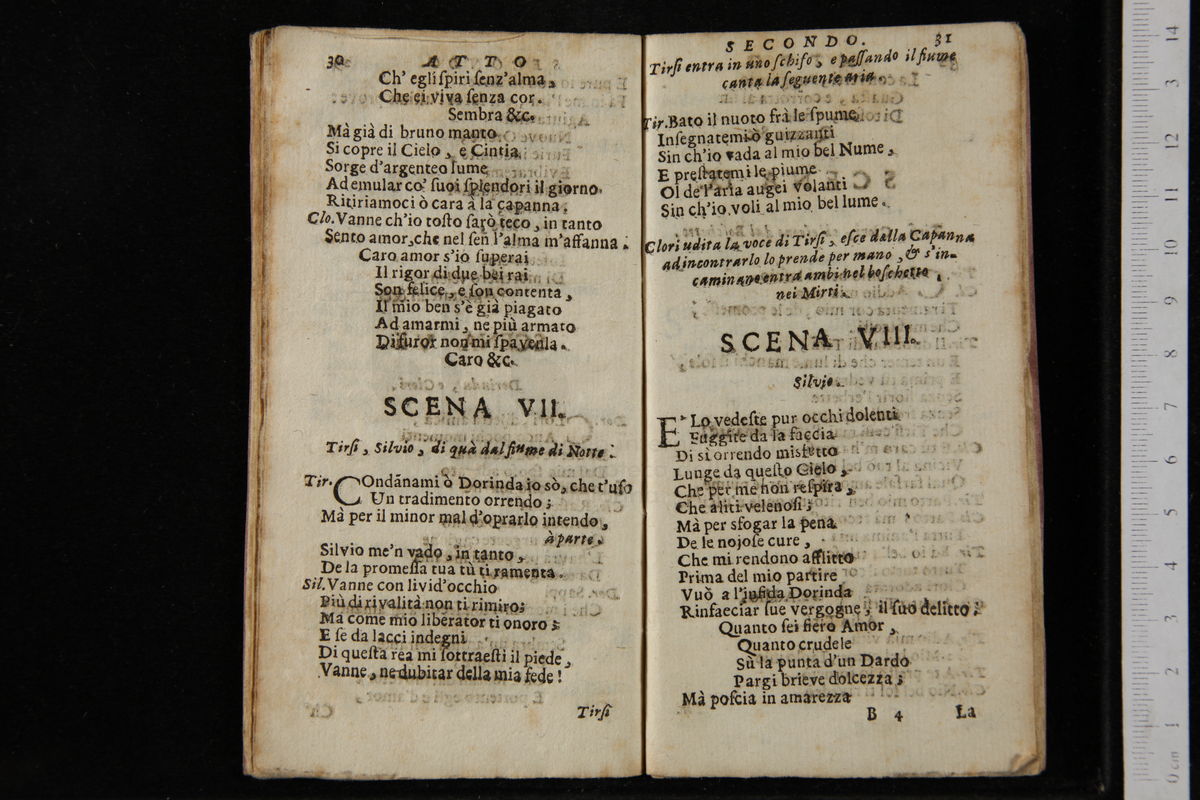 30 ATTO
Ch' egli ſpiri ſenz'alma,
Che ei viva ſenza cor.
Sembra &c.
Mà già di bruno manto
Si copre il Cielo, e Cintia
Sorge d'argenteo lume
Ad emular co' ſuoi ſplendori il giorno.
Ritiriamoci ò cara à la capanna.
Clo. Vanne ch'io toſto ſarò teco, in tanto
Sento amor, che nel ſen l'alma m'affanna.
Caro amor s'io ſuperai
Il rigor di due bei rai
Son felice, e ſon contenta,
Il mio ben s'è già piagato
Ad amarmi, ne più armato
Di furor non mi ſpavenla.
Caro &c.
SCENA VII.
Tirſi, Silvio, di quà dal fiume di Notte.
Tir. COndãnami ò Dorinda io sò, che t'uſo
Un tradimento orrendo;
Mà per il minor mal d'oprarlo intendo,
à parte.
Silvio me'n vado, in tanto,
De la promeſſa tua tù ti ramenta.
Sil. Vanne con livid'occhio
Più di rivalità non ti rimiro;
Ma come mio liberator ti onoro;
E ſe da lacci indegni
Di queſta rea mi ſottraeſti il piede,
Vanne, ne dubitar della mia fede!
Tirſi
SECONDO. 31
Tirſi entra in uno ſchifo, e paſſando il fiume
canta la ſeguente aria.
Tir. Bato il nuoto frà le ſpume
Inſegnatemi ò guizzanti
Sin ch'io vada al mio bel Nume,
E preſtatemi le piume
Ol de l'aria augei volanti
Sin ch'io voli al mio bel lume.
Clori udita la voce di Tirſi, eſce dalla Capanna
ad incontrarlo lo prende per mano, & s'in-
caminano entra ambi nel boſchetto
nei Mirti.
SCENA VIII.
Silvio.
E Lo vedeſte pur occhi dolenti
Fuggite da la faccia
Di sì orrendo misfatto
Lunge da queſto Cielo,
Che per me non reſpira,
Che aliti velenoſi;
Mà per sfogar la pena
De le nojoſe cure,
Che mi rendono afflitto
Prima del mio partire
Vuò a l'infida Dorinda
Rinfacciar ſue vergogne, il ſuo delitto.
Quanto ſei fiero Amor,
Quanto crudele
Sù la punta d'un Dardo
Pargi brieve dolcezza;
Mà poſcia in amarezza
B 4 La